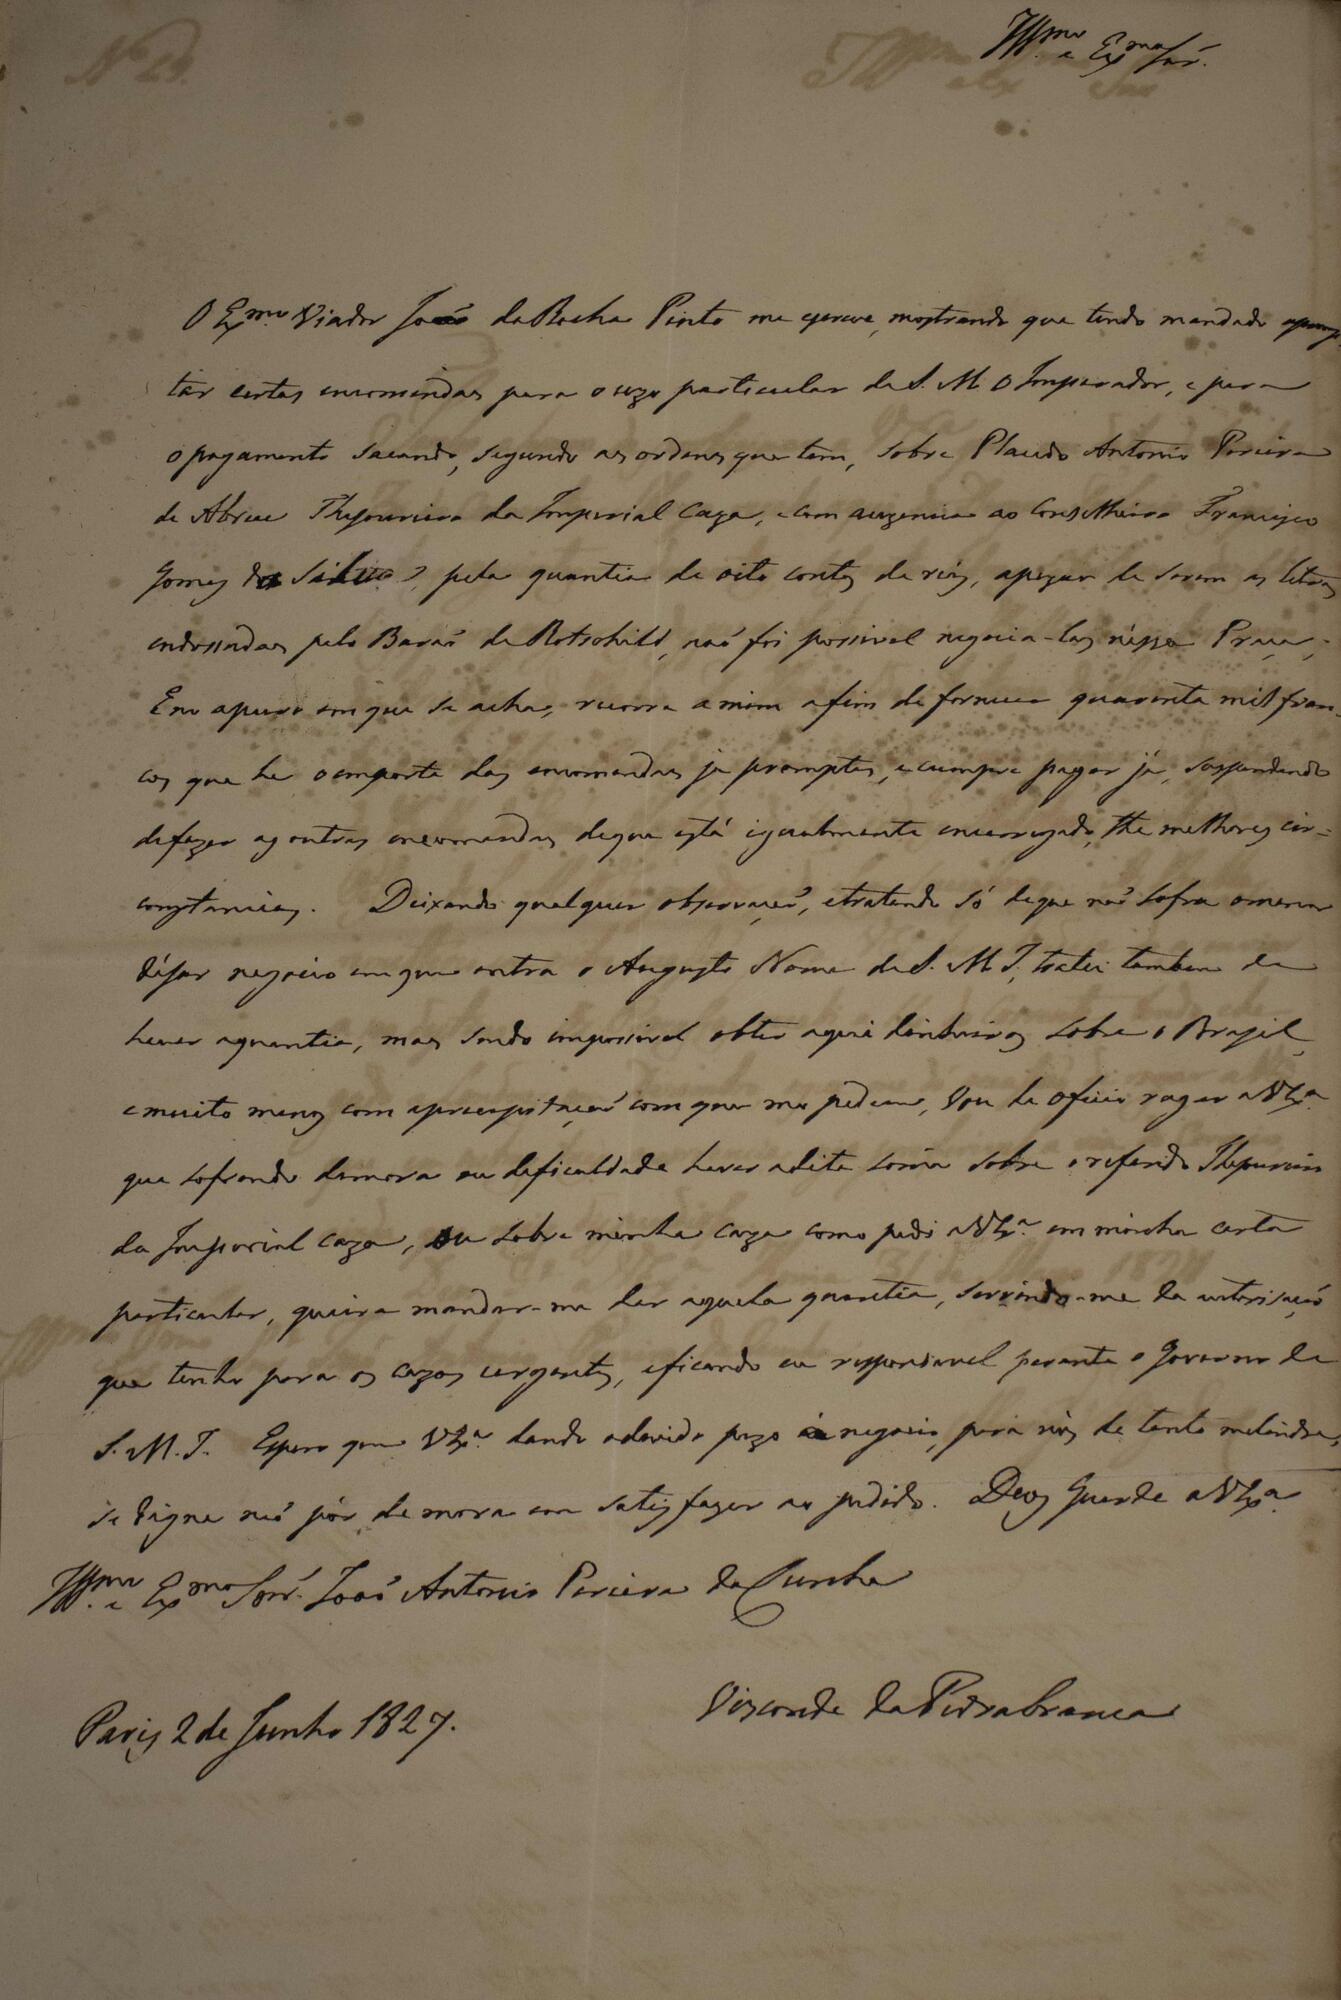 Illmo. e Exmo. Snr.
O Exmo. Viador João da Rocha Pinto me escreve, mostrando que tendo mandado apromp-
tar certas encomendas para o uzo particular de S. M. O Imperador, e para
o pagamento sacando, segundo as ordens que tem, sobre Placido Antonio Pereira
de Abreu Thesoureiro da Imperial Caza, e com auzencia ao Conselheiro Francisco
Gomes da Silva, pela quantia de oito contos de reis, apezar de serem as letras
endossadas pelo Barão de Rotschild, não foi possivel negocia-las nessa Praça;
Em apuro em que se acha, recorre a mim afim de fornecer quarenta mil fran-
cos que he o importe das encomendas ja promptas, e cumpre pagar já, suspendendo
de fazer as outras encomendas de que está igualmente encarregado, the melhores cir-
constancias. Deixando qualquer observação, e tratando só de que não sofra o menor
dezar negocio em que entra o Augusto Nome de S. M. I., tratei tambem de
haver a quantia, mas sendo impossivel obter aqui dinheiros sobre o Brasil,
e muito menos com a precepitação com que me pedem, vou de oficio rogar a V Exa.
que sofrendo demora ou deficuldade haver a dita soma sobre o referido Thesoureiro
da Imperial caza, ou sobre minha caza como pedi a V Exa. em minha carta
particular, queira mandar-me dar aquela quantia, servindo-me da autorisação
que tenho para os cazos urgentes, e ficando eu responsavel perante o Governo de
S. M. I. Espero que V Exa. dando a devido pezo a negocio, para nós de tanto melindre,
se digne não pôr demora em satisfazer ao pedido. Deos Guarde a V Exa.
Illmo. e Exmo. Snr. João Antonio Pereira da Cunha
Visconde da Pedrabranca
Paris 2 de Junho 1827.